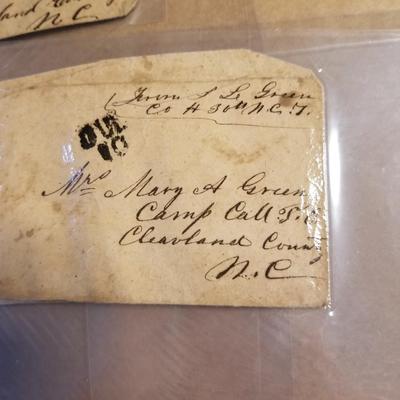 land
N.C
From S L Green
Co H 30th N.C.T.
10
Mrs Mary A Green
Camp Call
Cleavland County
N.C